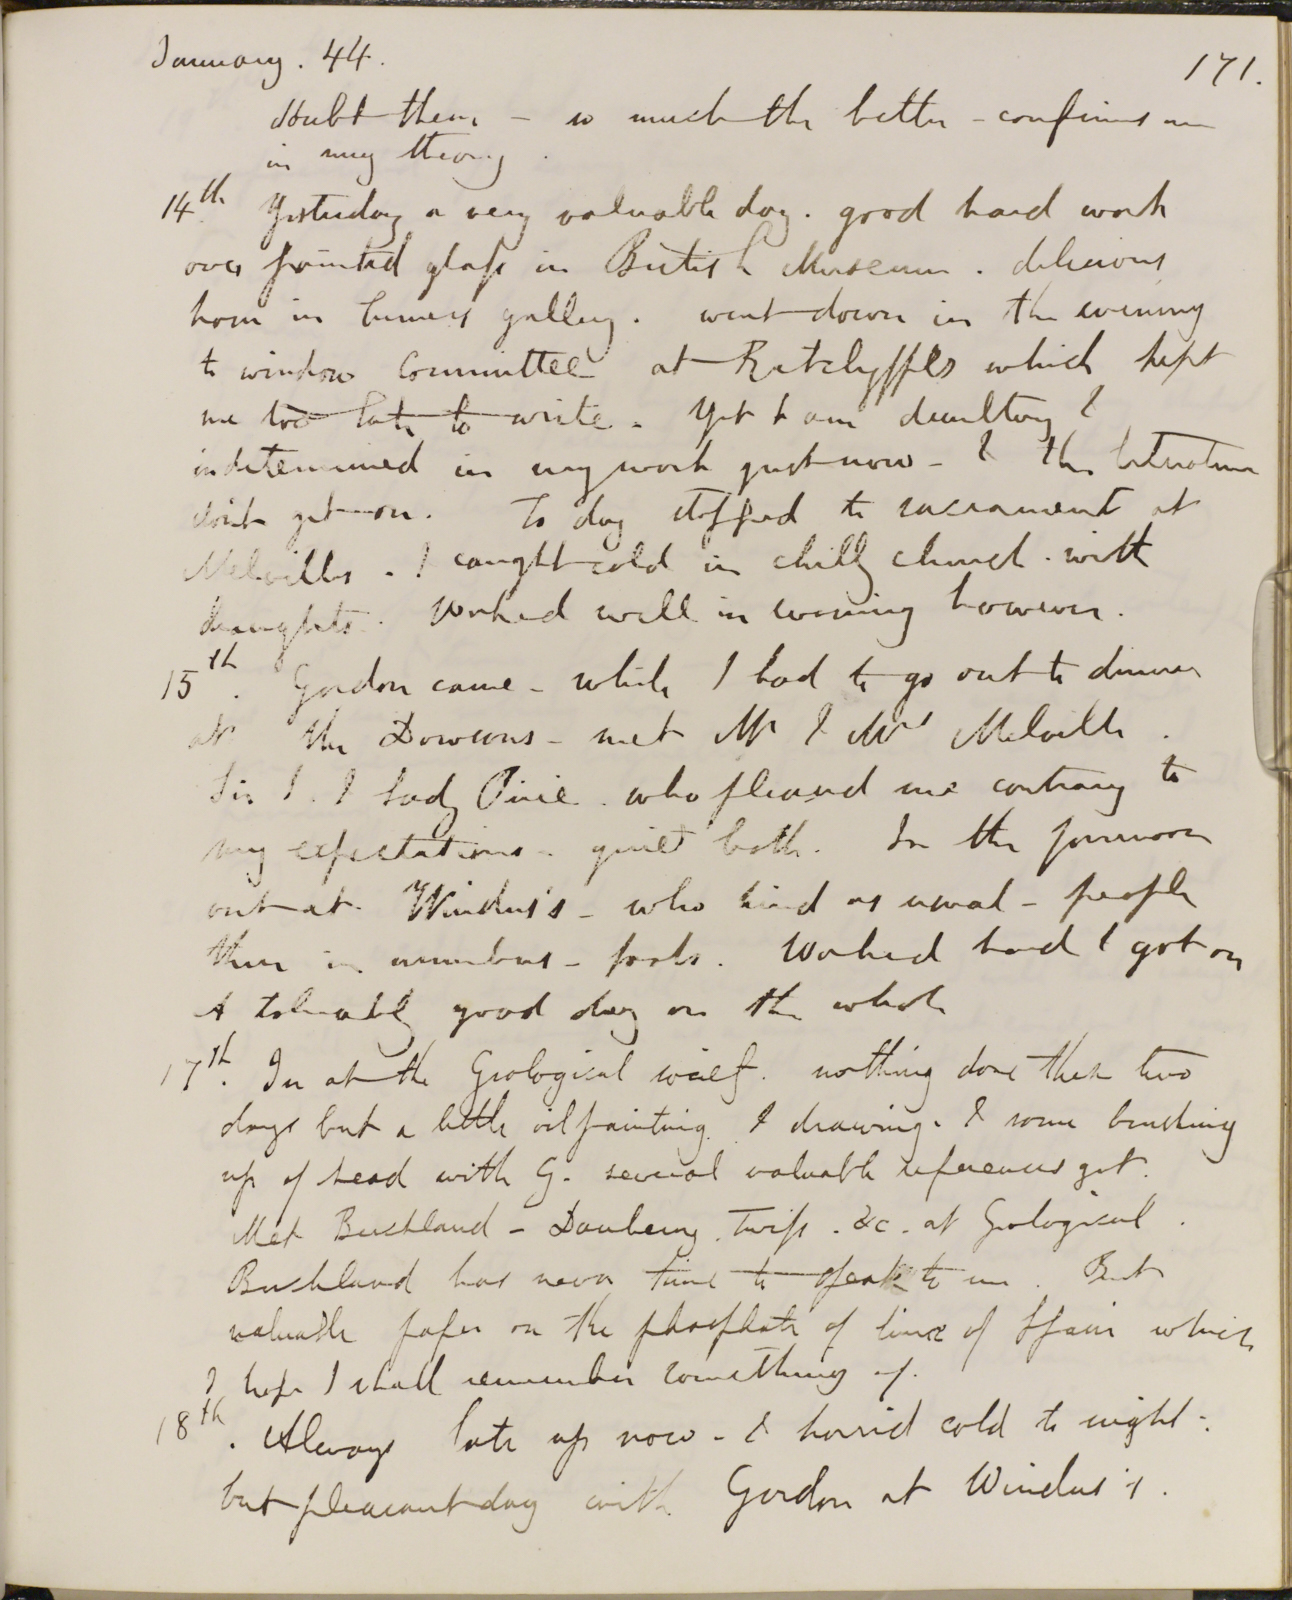 January. 44.
171.
doubt them - so much the better - confirms me
in my theory.
14th Yesterday a very valuable day. good hard work
over painted glass in British Museum. delicious
hour in Turners gallery. went down in the evening
to window Committee at Ratclyffes which kept
me too late to write. Yet I am desultory &
indetermined in my work just now - & the literature
dont get on. To day stopped to sacrament at
Melvilles - & caught cold in chilly church. with
draughts. Worked well in evening however.
15th. Gordon came - while I had to go out to dinner
at the Dowsons - met Mr & Mrs Melville.
Sir J. & Lady Pirie. who pleased me contrary to
my expectations - quiet both. In the forenoon
out at Windus's - who kind as usual - people
there in numbers - fools. Worked hard & got on
A tolerably good day on the whole
17th. In at the Geological society. nothing done these two
days but a little oil painting. & drawing. & some brushing
up of head with G. several valuable references got.
Met Buckland - Daubeny. Twiss. &c. at Geological.
Buckland has never time to speak to me. But
valuable paper on the phosphate of lime of Spain which
I hope I shall remember something of.
18th. Always late up now - & horrid cold to night -
but pleasant day with Gordon at Windus's.